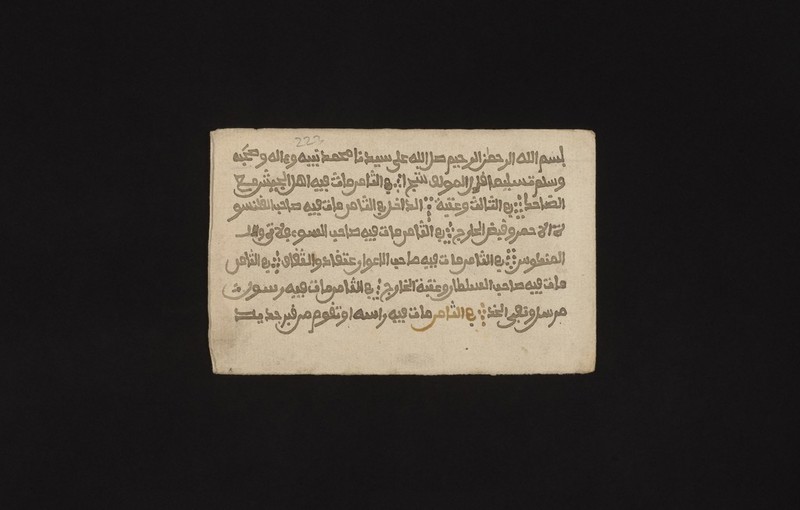 223
بسم الله الرحمن الرحيم صل الله على سيدنا محمد نبيه وءاله وصحبه
وسلم تسليما المولف في الثامن مات فيه اهل الجيش مع
الضاحك في الثالث وعقبة الداخل في الثامن مات فيه صاحب
الاحمر وقبض الخارج في الثامن مات فيه صاحب السوء
المنكوس في الثامن مات فيه صاحب والثقاف في الثامن
مات فيه صاحب السلطان وعقبة الخارج في الثامن مات فيه رسول
مرسل ونقي الخد في الثامن مات فيه راسه او تقوم من قبر جديد